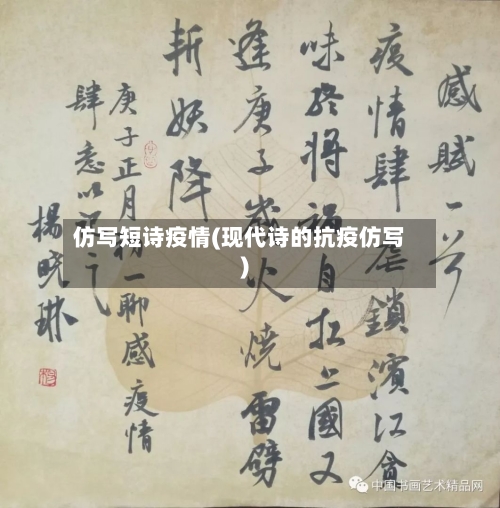 感賦一首
疫情肆鎖濱江貪
味終將禍自扛上國又
逢庚子歲火燒雷劈
斬妖降
庚子正月初一聊感疫情
肆意以
楊曉琳
仿写短诗疫情(现代诗的抗疫仿写
)
中国书画艺术精品网